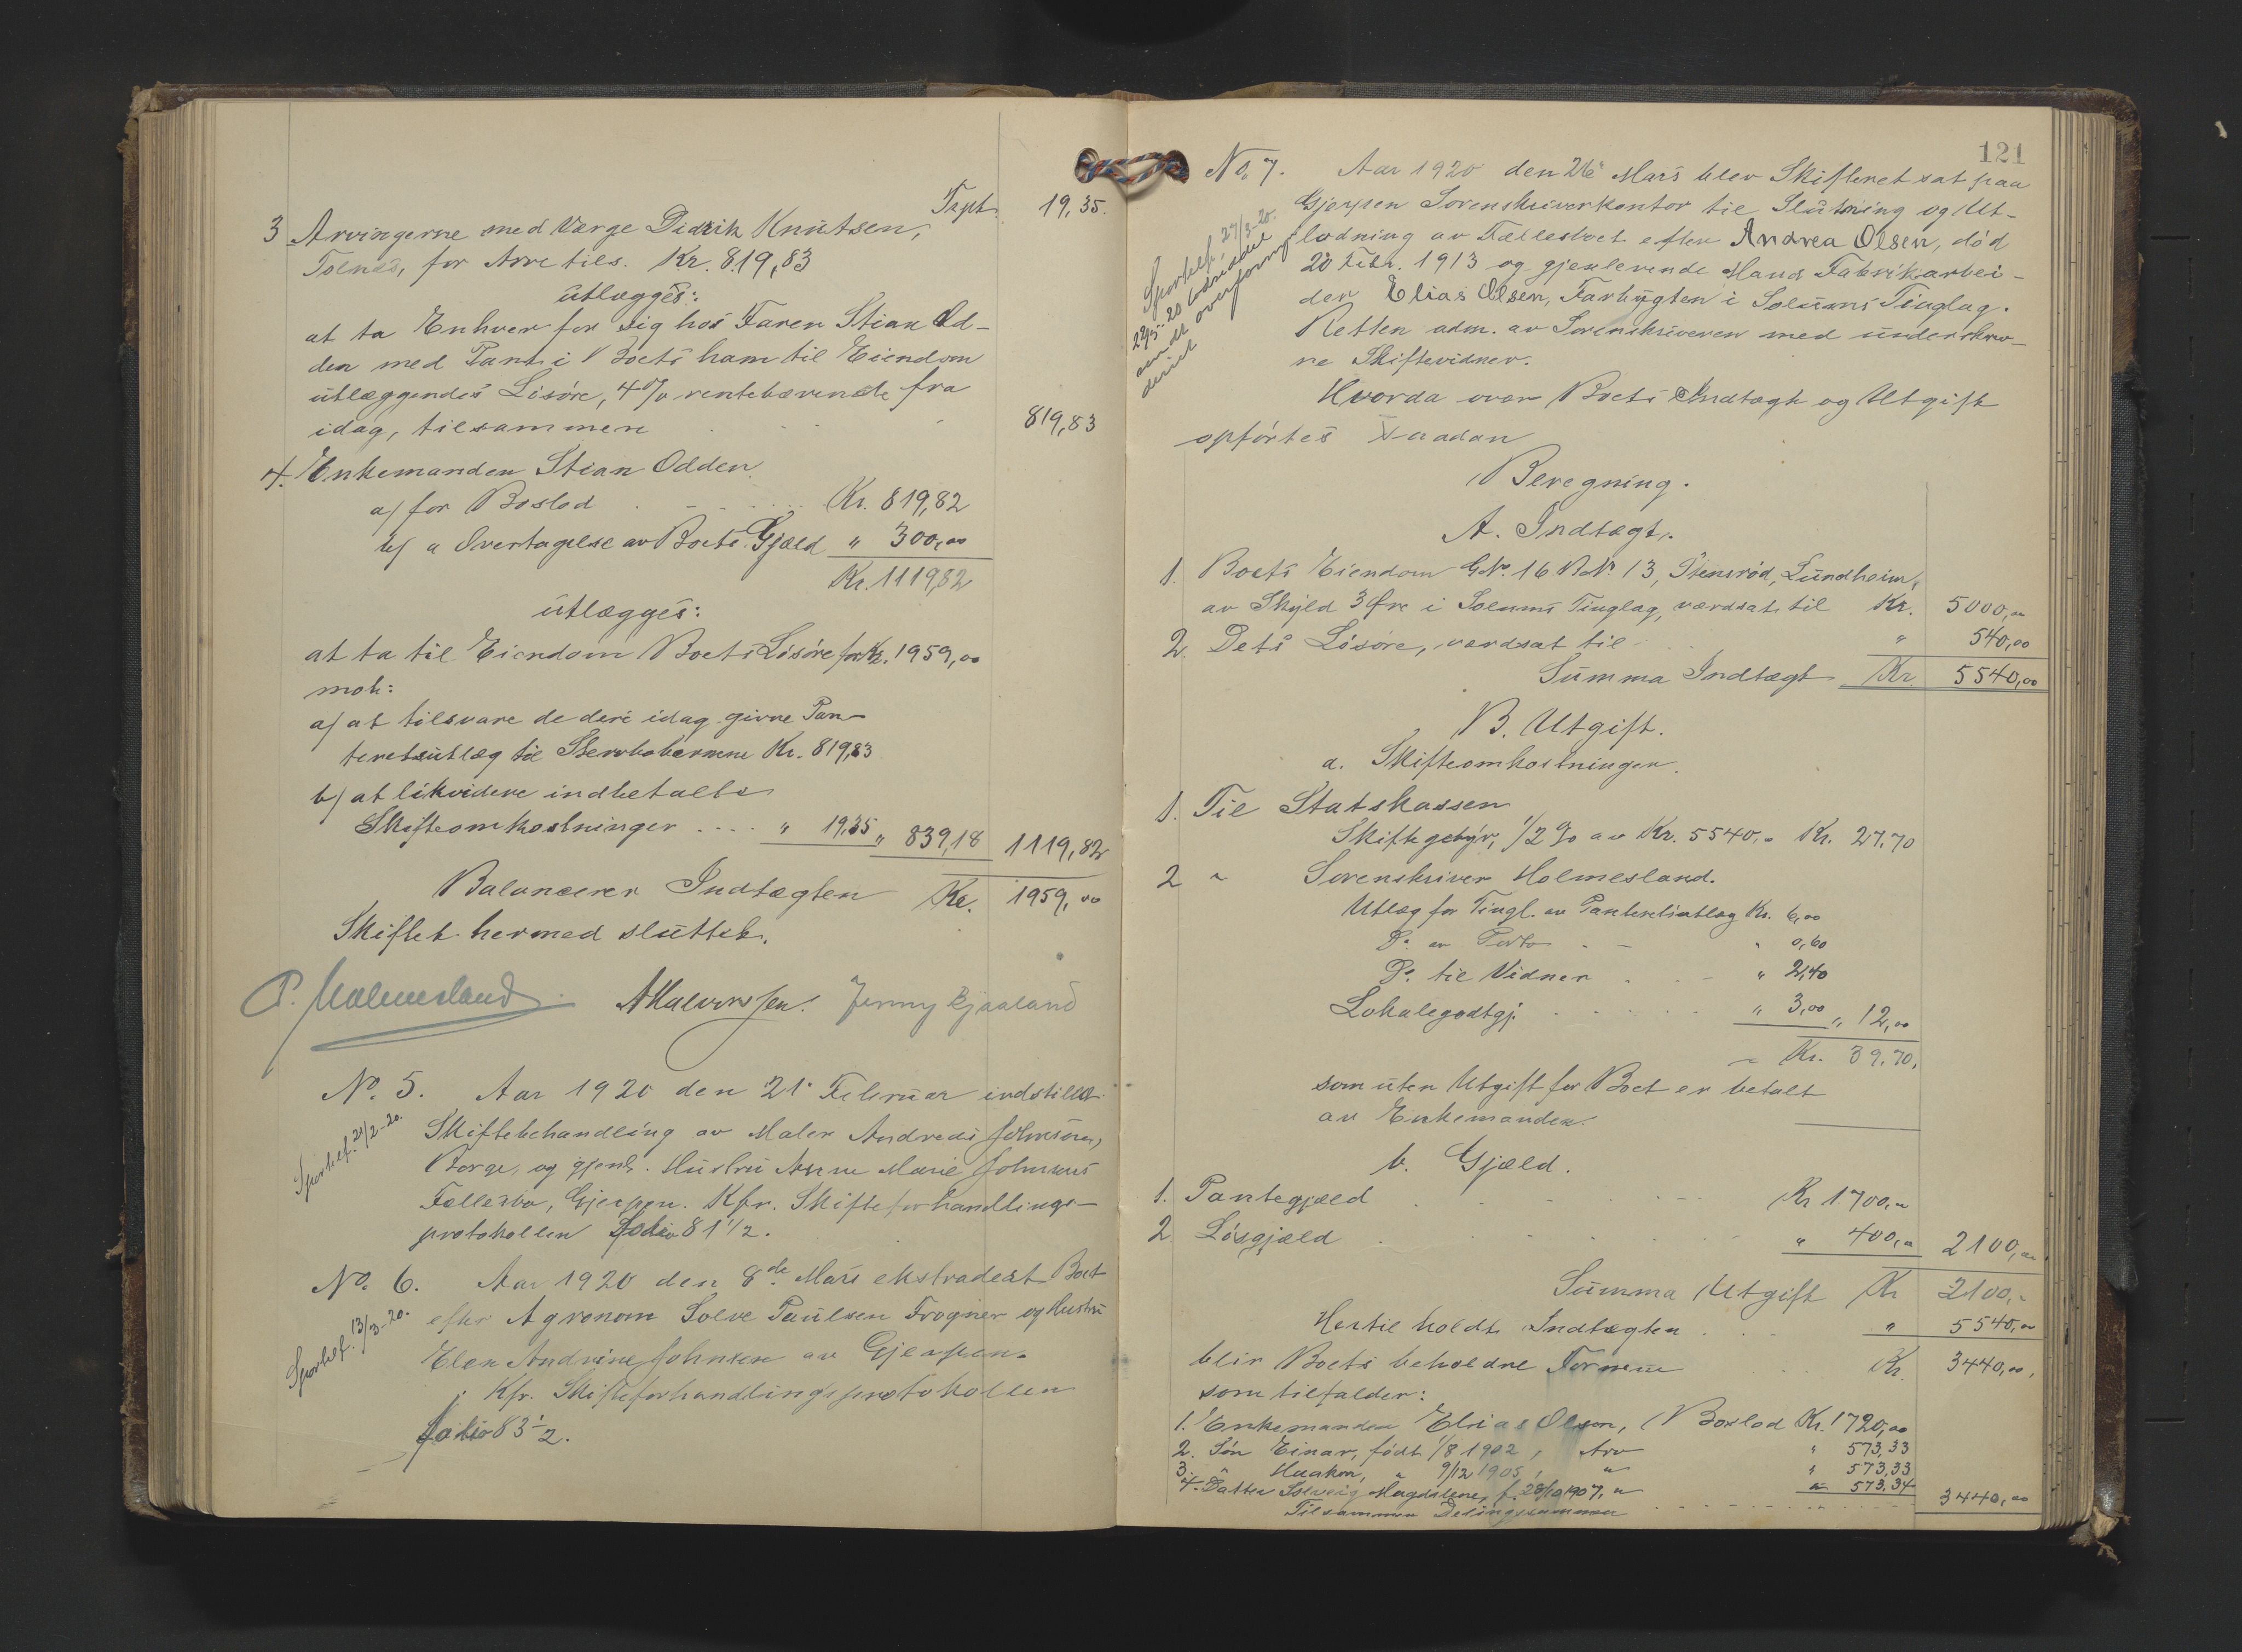 Trpt. 19,35.
3 Arvingerne med Værge Didrik Knutsen,
Tolnæs, for Arv tils. Kr. 819,83
utlægges:
at ta Enhver for sig hos Faren Stian Od-
den med Pant i Boets ham til Eiendom
utlæggendes Løsøre, 4 % rentebærende fra
idag, tilsammen 819,83
4. Enkemanden Stian Odden
a/ for Boslod Kr. 819,82
b/ " Overtagelse av Boets Gjæld " 300,00
Kr. 1119,82
utlægges:
at ta til Eiendom Boets Løsøre for Kr. 1959,00
mot:
a/ at tilsvare de deri idag givne Pan-
teretsutlæg til Stervbobørnene Kr. 819,83
b/ at likvidere indbetalte
Skifteomkostninger .... " 19,35 " 839,18 1119,82
Balancerer Indtægten Kr. 1959,00
Skiftet hermed sluttet.
P. Holmesland. A Halvorssen. Jenny Bjaaland
No. 5. Aar 1920 den 21. Februar indstillet
Sportelf. 21/2-20.
Skiftebehandling av Maler Andreas Johnsens,
Borge, og gjenl. Hustru Anne Marie Johnsens
Fællesbo, Gjerpen. Kfr. Skifteforhandlings-
protokollen Folio 81 1/2.
No. 6. Aar 1920 den 8de Mars ekstradert Boet
Sportelf. 13/3-20.
efter Agronom Solve Paulsen Frogner og Hustru
Elen Andrine Johnsen av Gjerpen.
Kfr. Skifteforhandlingsprotokollen
folio 83 1/2.
121
No. 7. Aar 1920 den 26' Mars blev Skifteret sat paa
Gjerpen Sorenskriverkontor til Slutning og Ut-
lodning av Fællesboet efter Andrea Olsen, død
20 Febr. 1913 og gjenlevende Mand Fabrikarbei-
der Elias Olsen, Farbygten i Solums Tinglag.
Retten adm. av Sorenskriveren med underskrev-
ne Skiftevidner.
Sportelf. 27/3-20.
22/5-20 Lodseddel
sendt overform
deriet
Hvorda over Boets Indtægt og Utgift
opførtes saadan
Beregning.
A. Indtægt.
1. Boets Eiendom G.No. 16 B.No. 13, Stensrød, Lundheim,
av Skyld 3 Øre i Solums Tinglag, værdsat til Kr. 5000,00
2. Dets Løsøre, værdsat til " 540,00
Summa Indtægt Kr. 5540,00
B. Utgift.
a. Skifteomkostninger.
1. Til Statskassen
Skiftegebyr, 1/2 % av Kr. 5540,- Kr. 27,70
2 " Sorenskriver Holmesland.
Utlæg for Tingl. av Panteretsutlæg Kr. 6,00
Do. av Porto " 0,60
Do. til Vidner " 2,40
Lokalegodtgj. " 3,00 " 12,00
Kr. 39,70.
som uten Utgift for Boet er betalt
av Enkemanden.
b. Gjæld.
1. Pantegjæld Kr. 1700,00
2. Løsgjæld " 400,00 2100,00
Summa Utgift Kr 2100,-
Hertil holdt Indtægten " 5540,00
blir Boets beholdne Formue Kr. 3440,00,
som tilfalder:
1. Enkemanden Elias Olsen, Boslod Kr. 1720,00
2. Søn Einar, født 1/8 1902, Arv " 573,33
3. " Haakon, " 9/12 1905, " " 573,33
4. Datter Solveig Magdalene, f. 28/10 1907, " " 573,34
Tilsammen Delingssummen 3440,00